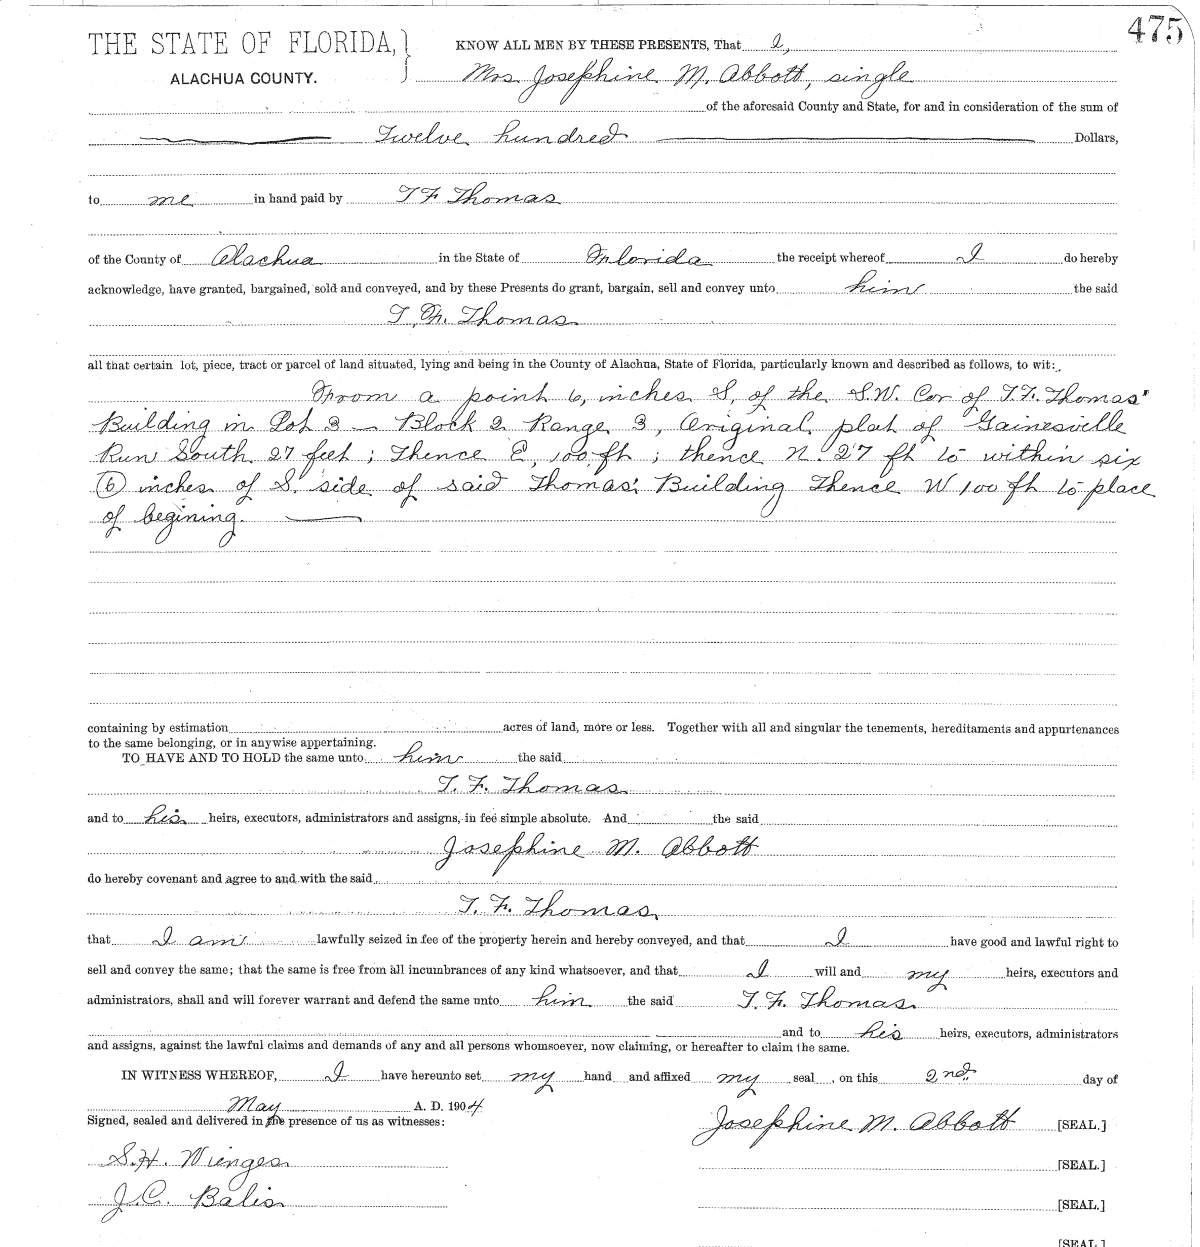 475
THE STATE OF FLORIDA,
ALACHUA COUNTY.
KNOW ALL MEN BY THESE PRESENTS, That I,
Mrs Josephine M. Abbott, single
of the aforesaid County and State, for and in consideration of the sum of
Twelve hundred Dollars,
to me in hand paid by T F Thomas
of the County of Alachua in the State of Florida the receipt whereof I do hereby
acknowledge, have granted, bargained, sold and conveyed, and by these Presents do grant, bargain, sell and convey unto him the said
T. F. Thomas
all that certain lot, piece, tract or parcel of land situated, lying and being in the County of Alachua, State of Florida, particularly known and described as follows, to wit:
From a point 6, inches S, of the S.W. Cor of T.F. Thomas'
Building in Lot 3 – Block 2 Range 3, Original plat of Gainesville
Run South 27 feet; Thence E, 100 ft; thence N. 27 ft to within six
(6) inches of S. side of said Thomas' Building Thence W 100 ft to place
of begining.
containing by estimation acres of land, more or less. Together with all and singular the tenements, hereditaments and appurtenances
to the same belonging, or in anywise appertaining.
TO HAVE AND TO HOLD the same unto him the said
T. F. Thomas
and to his heirs, executors, administrators and assigns, in fee simple absolute. And the said
Josephine M. Abbott
do hereby covenant and agree to and with the said
T. F. Thomas,
that I am lawfully seized in fee of the property herein and hereby conveyed, and that I have good and lawful right to
sell and convey the same; that the same is free from all incumbrances of any kind whatsoever, and that I will and my heirs, executors and
administrators, shall and will forever warrant and defend the same unto him the said T. F. Thomas
and to his heirs, executors, administrators
and assigns, against the lawful claims and demands of any and all persons whomsoever, now claiming, or hereafter to claim the same.
IN WITNESS WHEREOF, I have hereunto set my hand and affixed my seal, on this 2nd day of
May A. D. 1904
Signed, sealed and delivered in the presence of us as witnesses:
Josephine M. Abbott [SEAL.]
S.H. Wienges
[SEAL.]
J.C. Balis
[SEAL.]
[SEAL.]